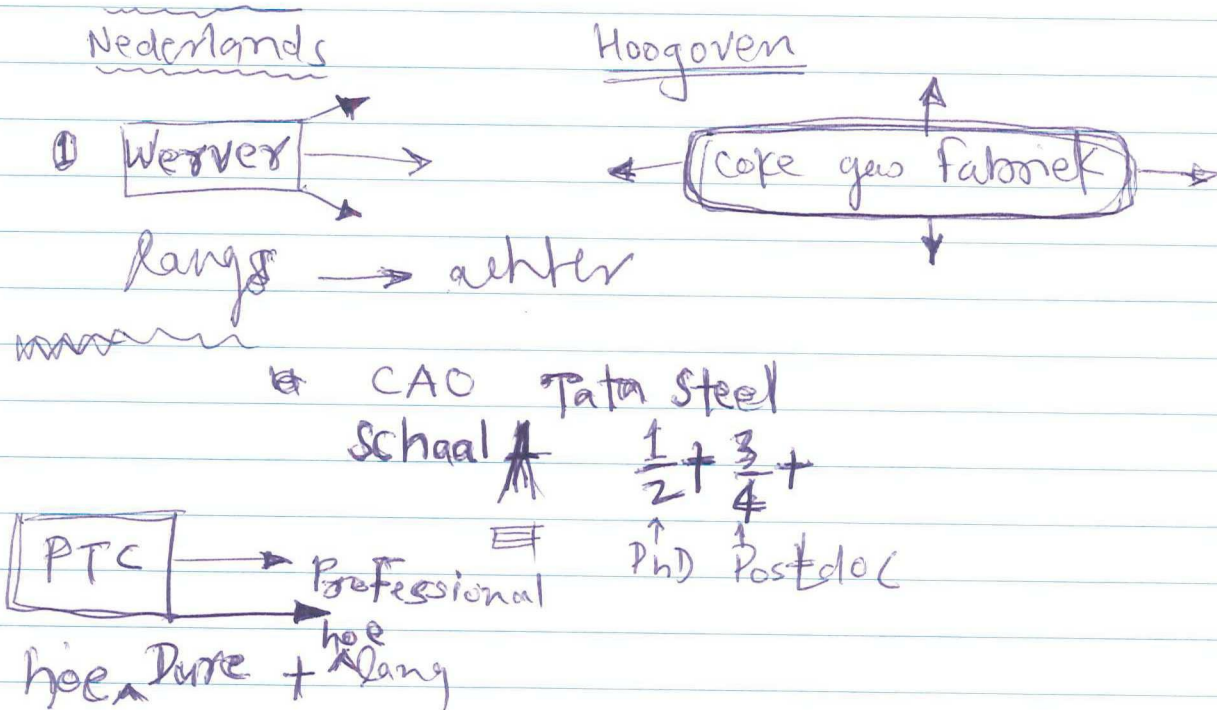 Nederlands
Hoogoven
① Werver
coke gas Fabriek
langs → achter
CAO Tata Steel
schaal A
1/2 + 3/4 +
PhD Postdoc
PTC → Professional
hoe Dure + hoe lang